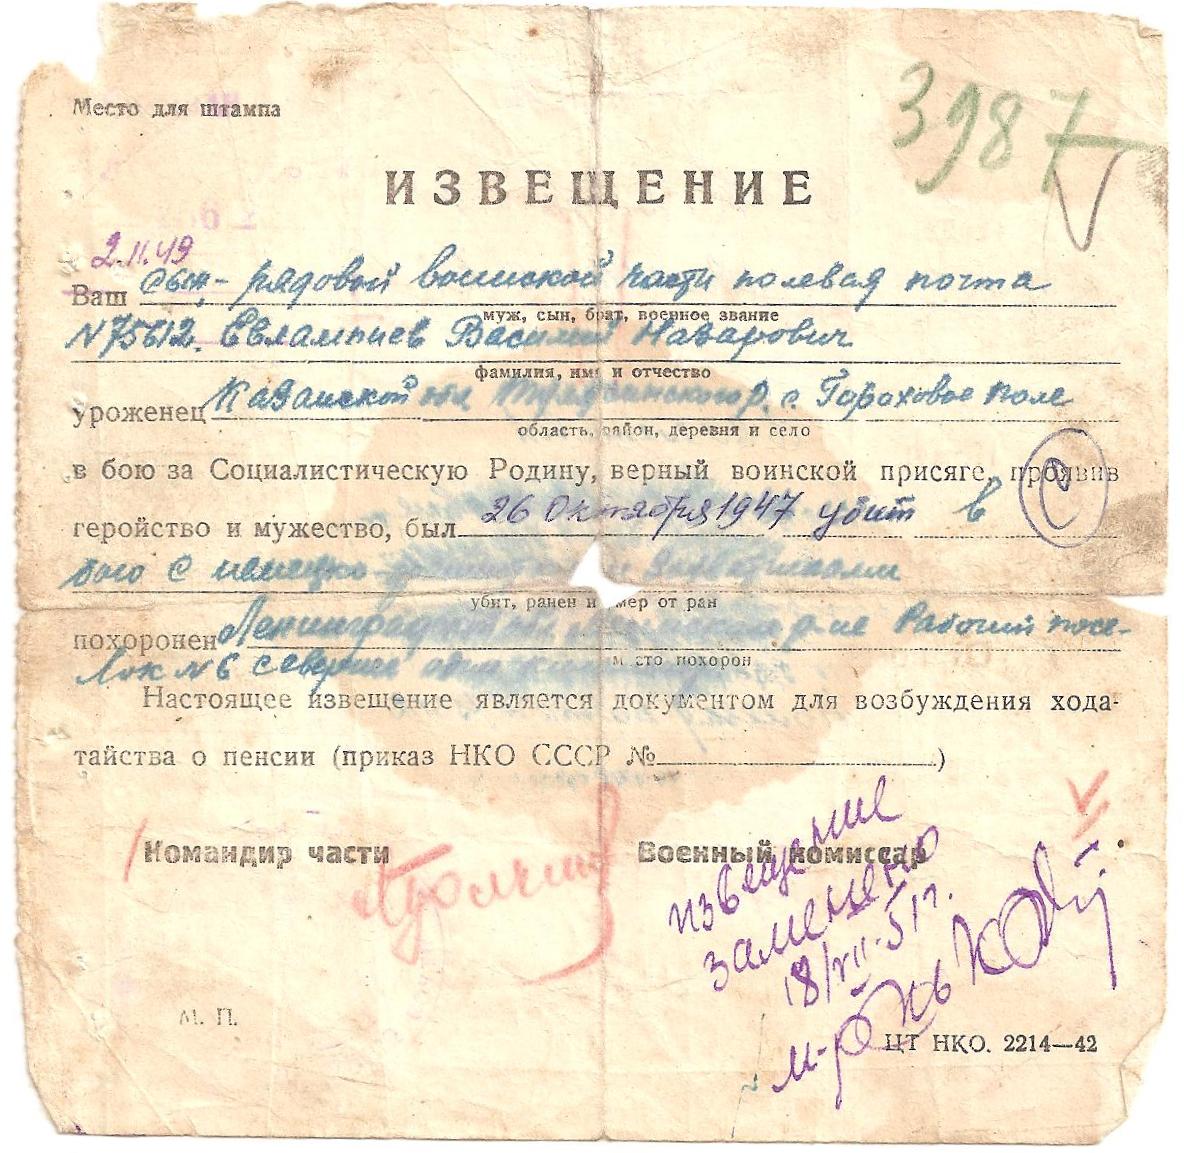 Место для штампа
3987
ИЗВЕЩЕНИЕ
2.11.49
Ваш сын - рядовой воинской части полевая почта
муж, сын, брат, военное звание
N75612. Евлампиев Василий Назарович
фамилия, имя и отчество
уроженец Казанской обл р. с. Гороховое Поле
область, район, деревня и село
в бою за Социалистическую Родину, верный воинской присяге, проявив
геройство и мужество, был 26 Октября 1947 убит в
бою с немецко-
убит, ранен и мер от ран
похоронен р-не Рабочий посе-
место похорон
лок N6 севернее
Настоящее извещение является документом для возбуждения хода-
тайства о пенсии (приказ НКО СССР № )
Командир части
Военный комиссар
извещение
заменено
18/VII-51г.
М. П.
м-р
ЦТ НКО. 2214—42